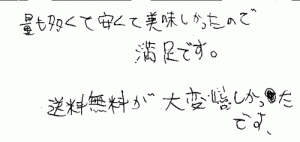 量も多くて安くて美味しかったので
満足です。
送料無料が大変嬉しかった
です、